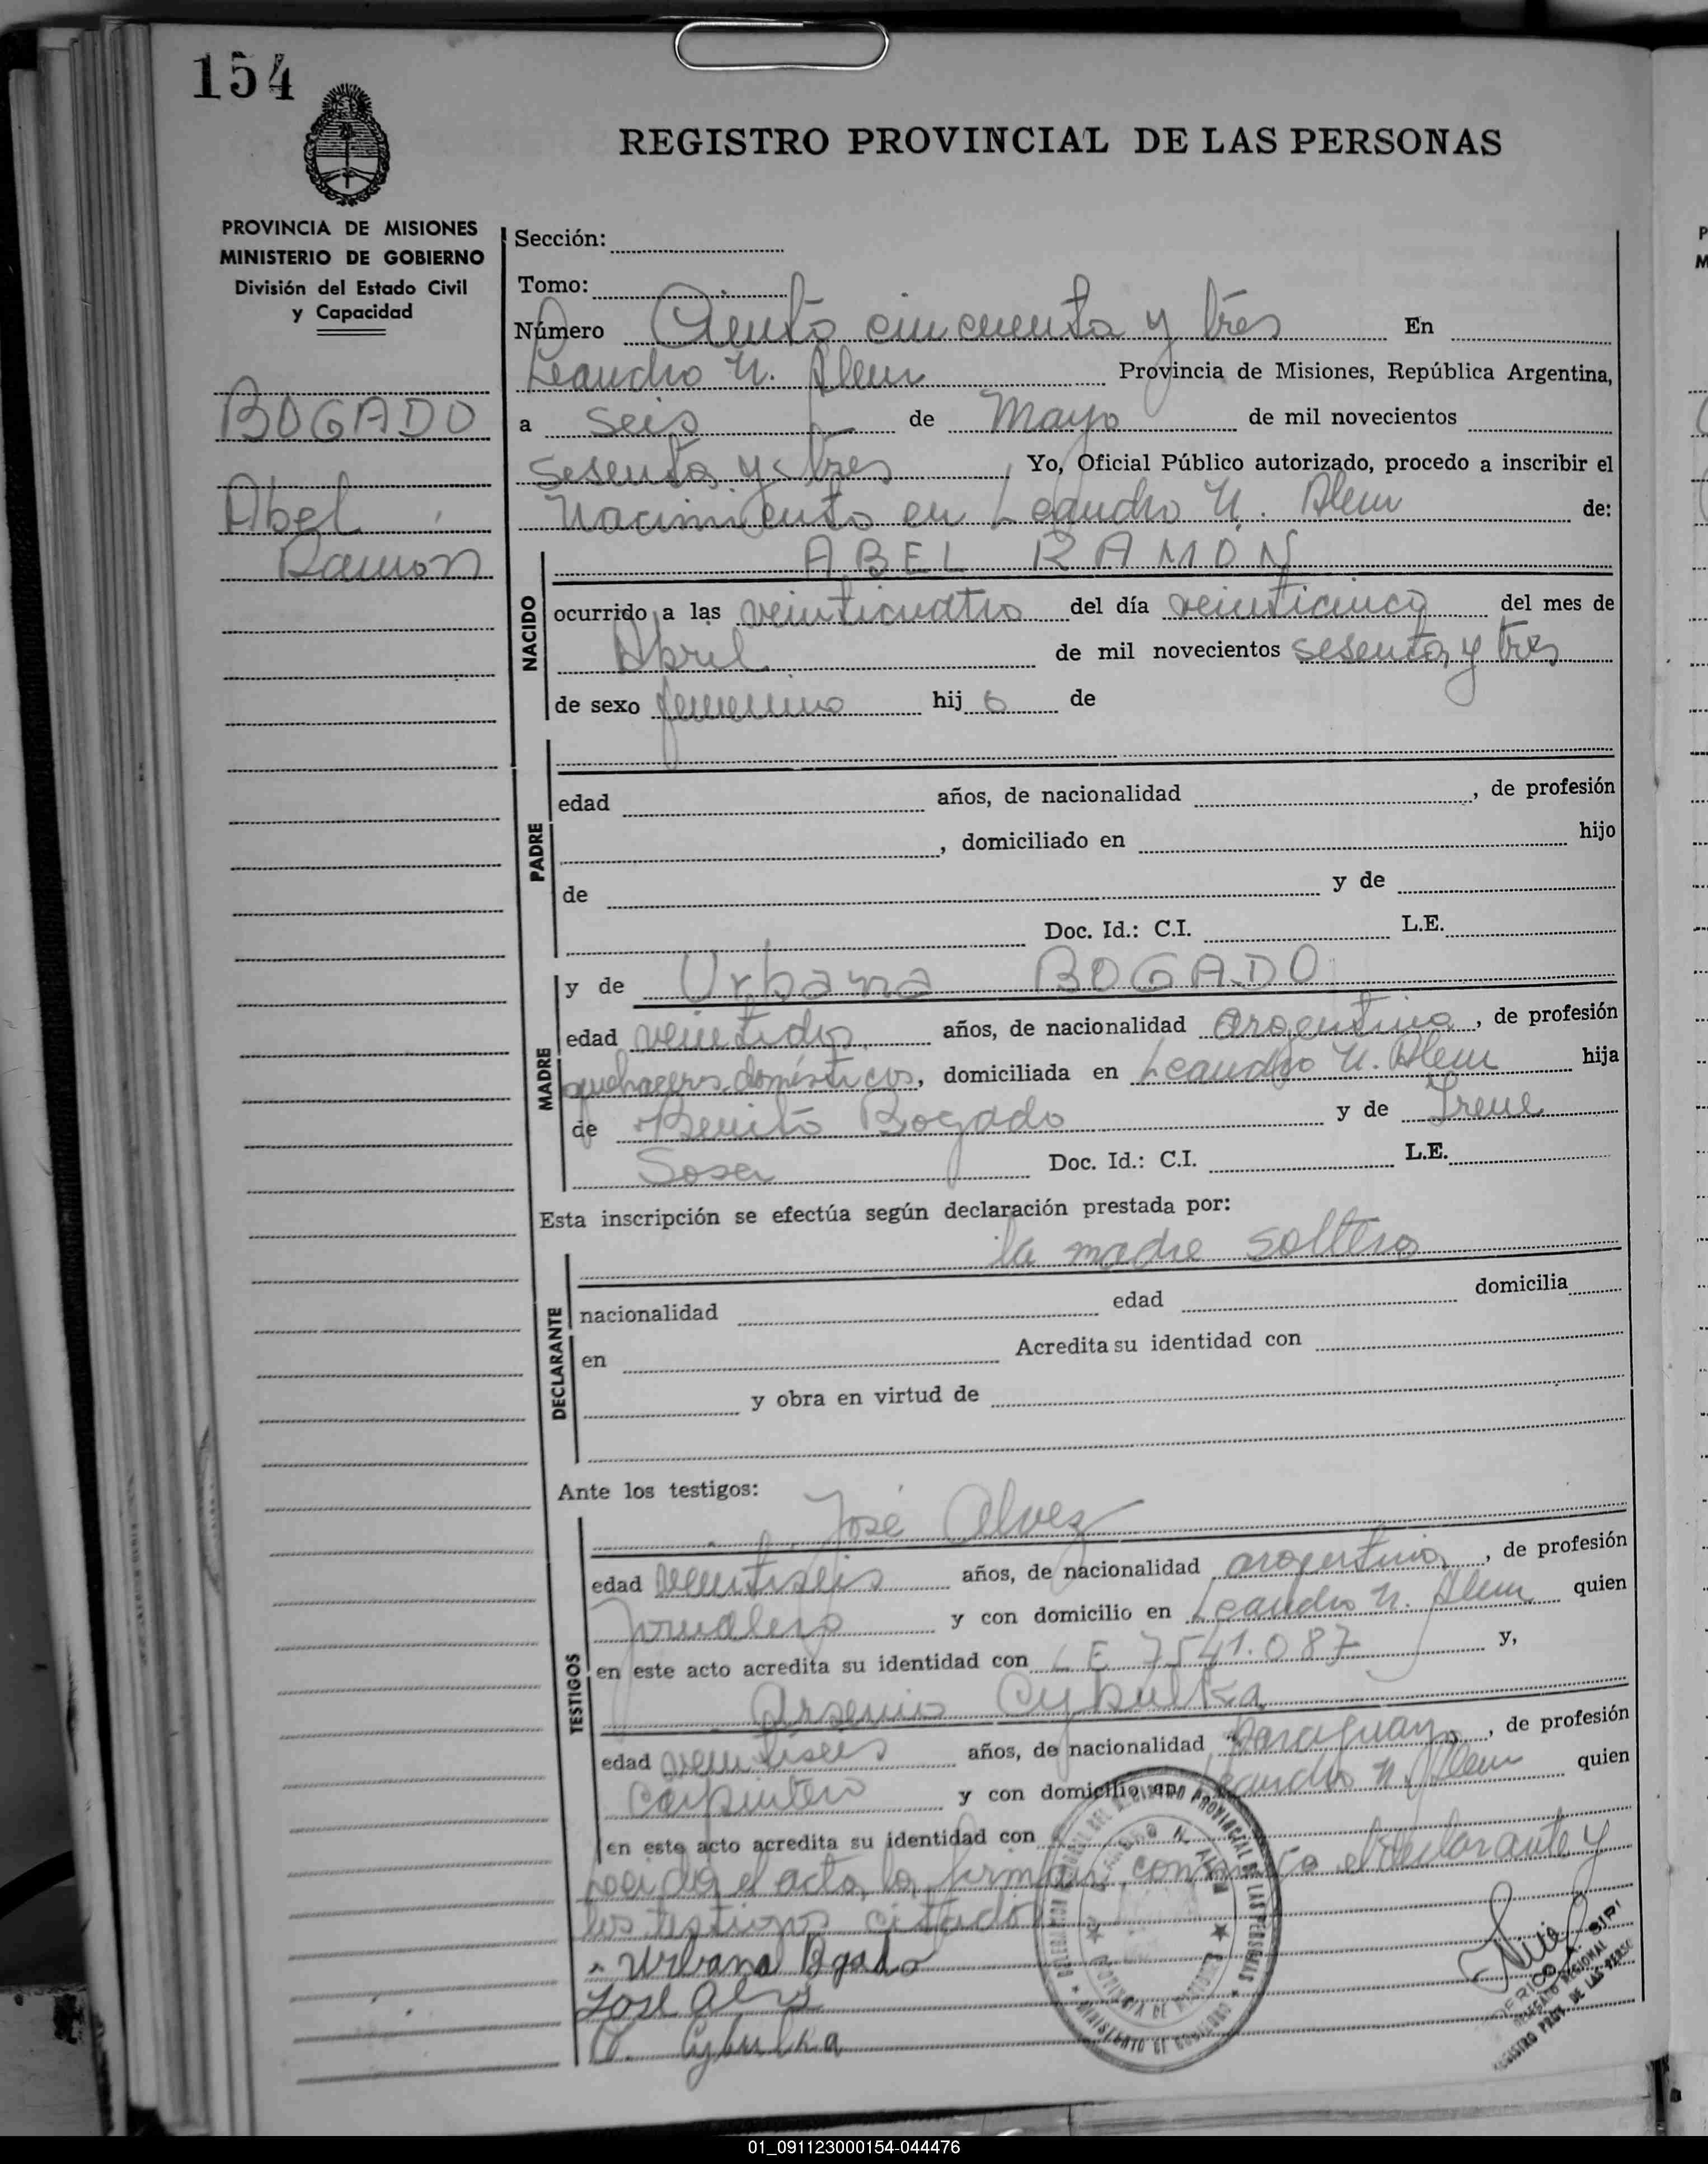 154
REGISTRO PROVINCIAL DE LAS PERSONAS
PROVINCIA DE MISIONES
MINISTERIO DE GOBIERNO
División del Estado Civil
y Capacidad
BOGADO
Abel
Ramon
Sección:
Tomo:
Número Ciento cincuenta y tres En
Leandro N. Alem Provincia de Misiones, República Argentina,
a seis de Mayo de mil novecientos
sesenta y tres, Yo, Oficial Público autorizado, procedo a inscribir el
Nacimiento en Leandro N. Alem de:
ABEL RAMÓN
NACIDO
ocurrido a las veinticuatro del día veinticinco del mes de
Abril de mil novecientos sesenta y tres
de sexo femenino hij o de
PADRE
edad años, de nacionalidad , de profesión
, domiciliado en hijo
de y de
Doc. Id.: C.I. L.E.
MADRE
y de Urbana BOGADO
edad veintidos años, de nacionalidad Argentina, de profesión
quehaceres domésticos, domiciliada en Leandro N. Alem hija
de Benito Bogado y de Irene
Sosa Doc. Id.: C.I. L.E.
Esta inscripción se efectúa según declaración prestada por:
la madre soltera
DECLARANTE
nacionalidad edad domicilia
en Acredita su identidad con
y obra en virtud de
Ante los testigos:
TESTIGOS
José Alvez
edad veintiseis años, de nacionalidad argentina, de profesión
Jornalero y con domicilio en Leandro N. Alem quien
en este acto acredita su identidad con LE 7541.087 y,
Arsenio Cybulka
edad veintiseis años, de nacionalidad Paraguaya, de profesión
Carpintero y con domicilio en Leandro N. Alem quien
en este acto acredita su identidad con
el acto, lo firman conmigo el declarante y
los testigos citados
Urbana Bgado
José Alvez
A. Cybulka
PROVINCIAL DE LAS PERSONAS
MINISTERIO DE GOBIERNO
DELEGADO REGIONAL
REGISTRO PROV. DE LAS PERSO
01_091123000154-044476